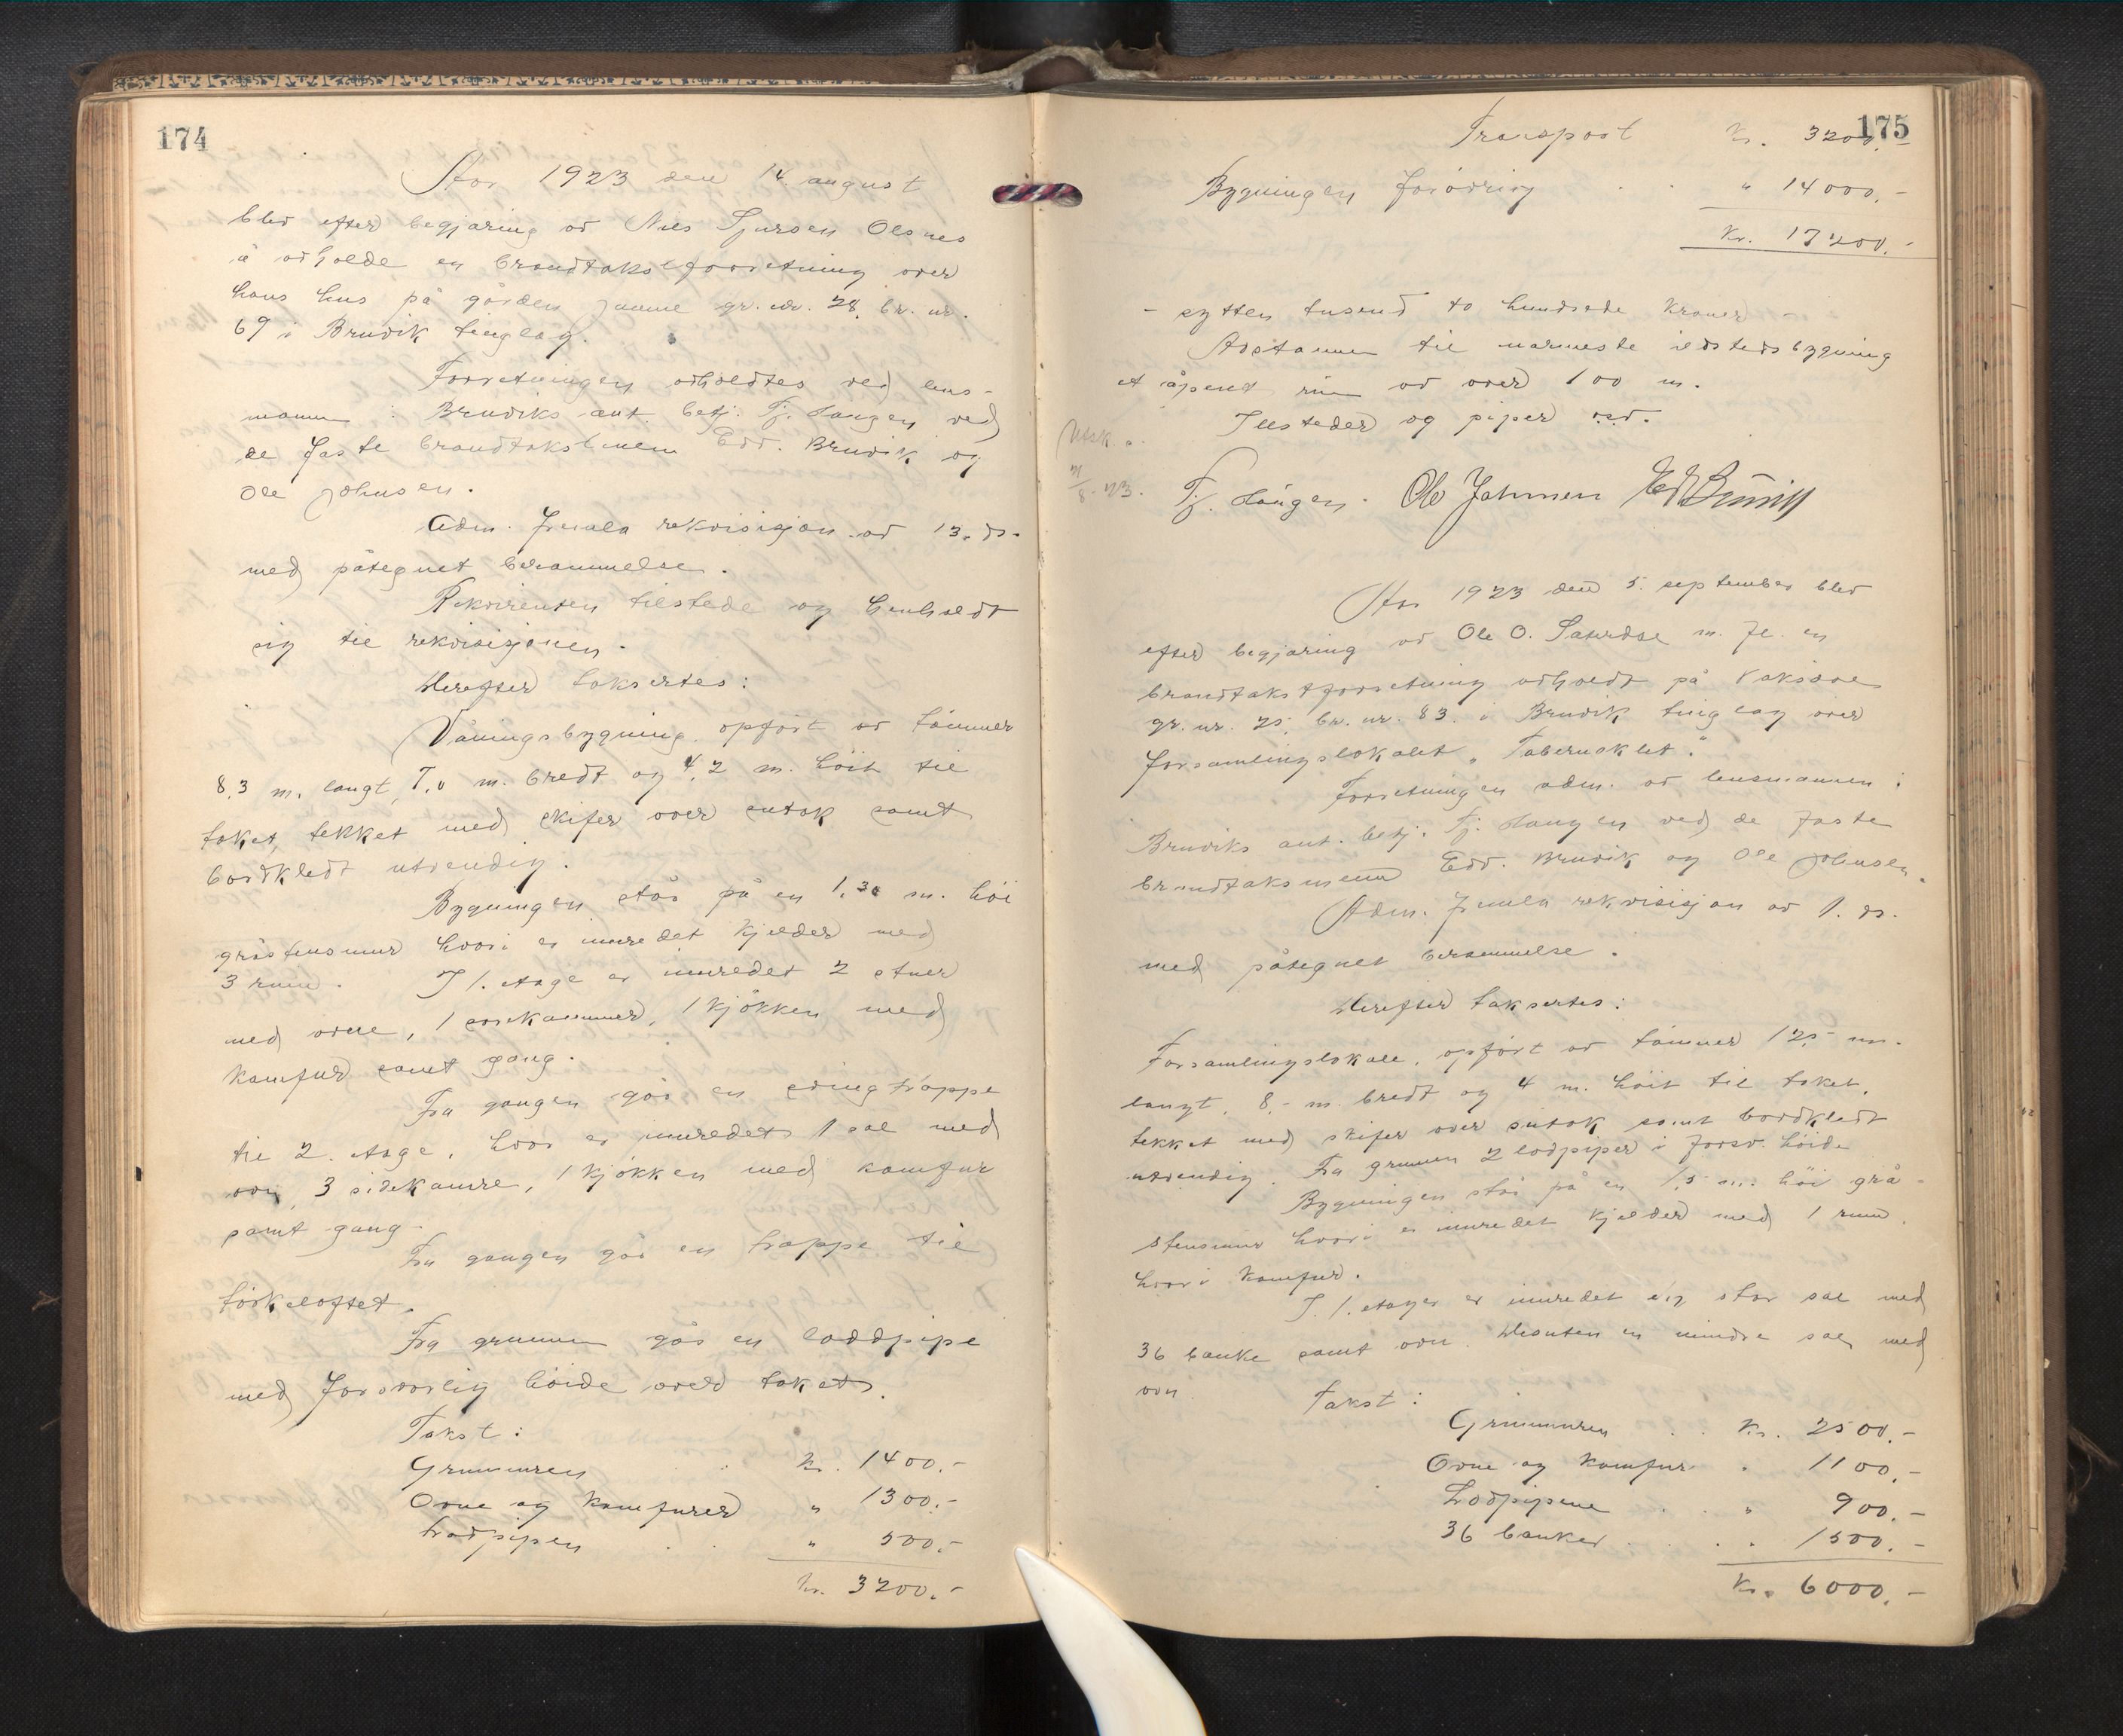 174
Aar 1923 den 14. august
blev efter begjæring av Nils Sjursen Olsnes
avholdt en brandtakstforretning over
hans hus på gården gr. nr. 28, br. nr.
69 i Bruvik tinglag.
Forretningen avholdtes ved lens-
mannen i Bruviks aut. betj. Tj. Haugen ved
de faste brandtakstmenn Edv. Bruvik og
Ole Johnsen.
Adm. fremla rekvisisjon av 13. ds.
med påtegnet berammelse.
Rekvirenten tilstede og henholdt
sig til rekvisisjonen.
Herefter taksertes:
Våningsbygning, opført av tømmer
8,3 m. langt, 7,0 m. bredt og 4,2 m. höit til
taket, tekket med skifer over sutak samt
bordkledt utvendig.
Bygningen står på en 1,30 m. höi
gråstensmur hvori er innredet kjelder med
3 rum. I 1. etage er innredet 2 stuer
med ovne, 1 sovekammer, 1 kjökken med
komfur samt gang.
Fra gangen går en svingtrappe
til 2. etage, hvor er innredet 1 sal med
ovn, 3 sidekamre, 1 kjökken med komfur
samt gang.
Fra gangen går en trappe til
törkeloftet.
Fra grunnen går en loddpipe
med forsvarlig höide over taket.
Takst:
Grunmuren . . kr. 1400.-
Ovne og komfurer " 1300.-
Lodpipen . . " 500.-
kr. 3200.-
175
Transport Kr. 3200.-
Bygningen forövrig . . " 14000.-
Kr. 17200.-
- sytten tusend to hundrede kroner -
Avstannen til nærmeste ildstedsbygning
et åpent rum av over 100 m.
Ildsteder og piper
Utsk. a.
/8-23.
Tj. Haugen. Ole Johnsen Ed Bruvik
Aar 1923 den 5. september blev
efter begjæring av Ole O. m. fl. en
brandtakstforretning avholdt på Vaksdal
gr. nr. 25, br. nr. 83. i Bruvik tinglag over
forsamlingslokalet "Tabernaklet."
Forretningen adm. av lensmannen i
Bruviks aut. betj. Tj. Haugen ved de faste
brandtaksmenn Edv. Bruvik og Ole Johnsen.
Adm. fremla rekvisisjon av 1. ds.
med påtegnet berammelse.
Herefter taksertes:
Forsamlingslokale, opfört av tömmer 12,5 m.
langt, 8,- m. bredt og 4 m. höit til taket,
tekket med skifer over sutak samt bordkledt
utvendig. Fra grunnen 2 lodpiper i forsv. höide
Bygningen står på en 1,5 m. höi grå-
stensmur hvori er innredet kjelder med 1 rum,
hvori komfur.
I 1. etage er innredet en stor sal med
36 banke samt ovn. Desuten en mindre sal med
ovn.
Takst:
Grunmuren . . Kr. 2500.-
Ovne og komfur " 1100.-
Lodpipene . . " 900.-
36 banker . . . " 1500.-
Kr. 6000.-